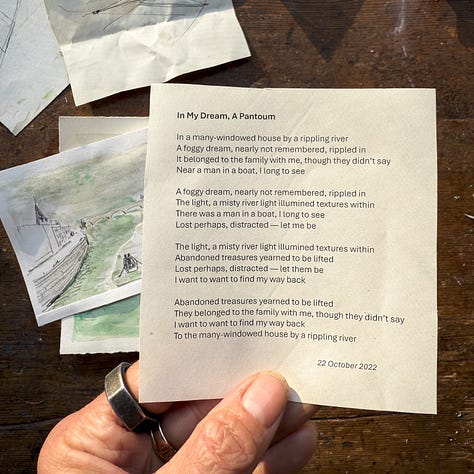 In My Dream, A Pantoum
In a many-windowed house by a rippling river
A foggy dream, nearly not remembered, rippled in
It belonged to the family with me, though they didn't say
Near a man in a boat, I long to see
A foggy dream, nearly not remembered, rippled in
The light, a misty river light illumined textures within
There was a man in a boat, I long to see
Lost perhaps, distracted — let me be
The light, a misty river light illumined textures within
Abandoned treasures yearned to be lifted
Lost perhaps, distracted — let them be
I want to want to find my way back
Abandoned treasures yearned to be lifted
They belonged to the family with me, though they didn't say
I want to want to find my way back
To the many-windowed house by a rippling river
22 October 2022